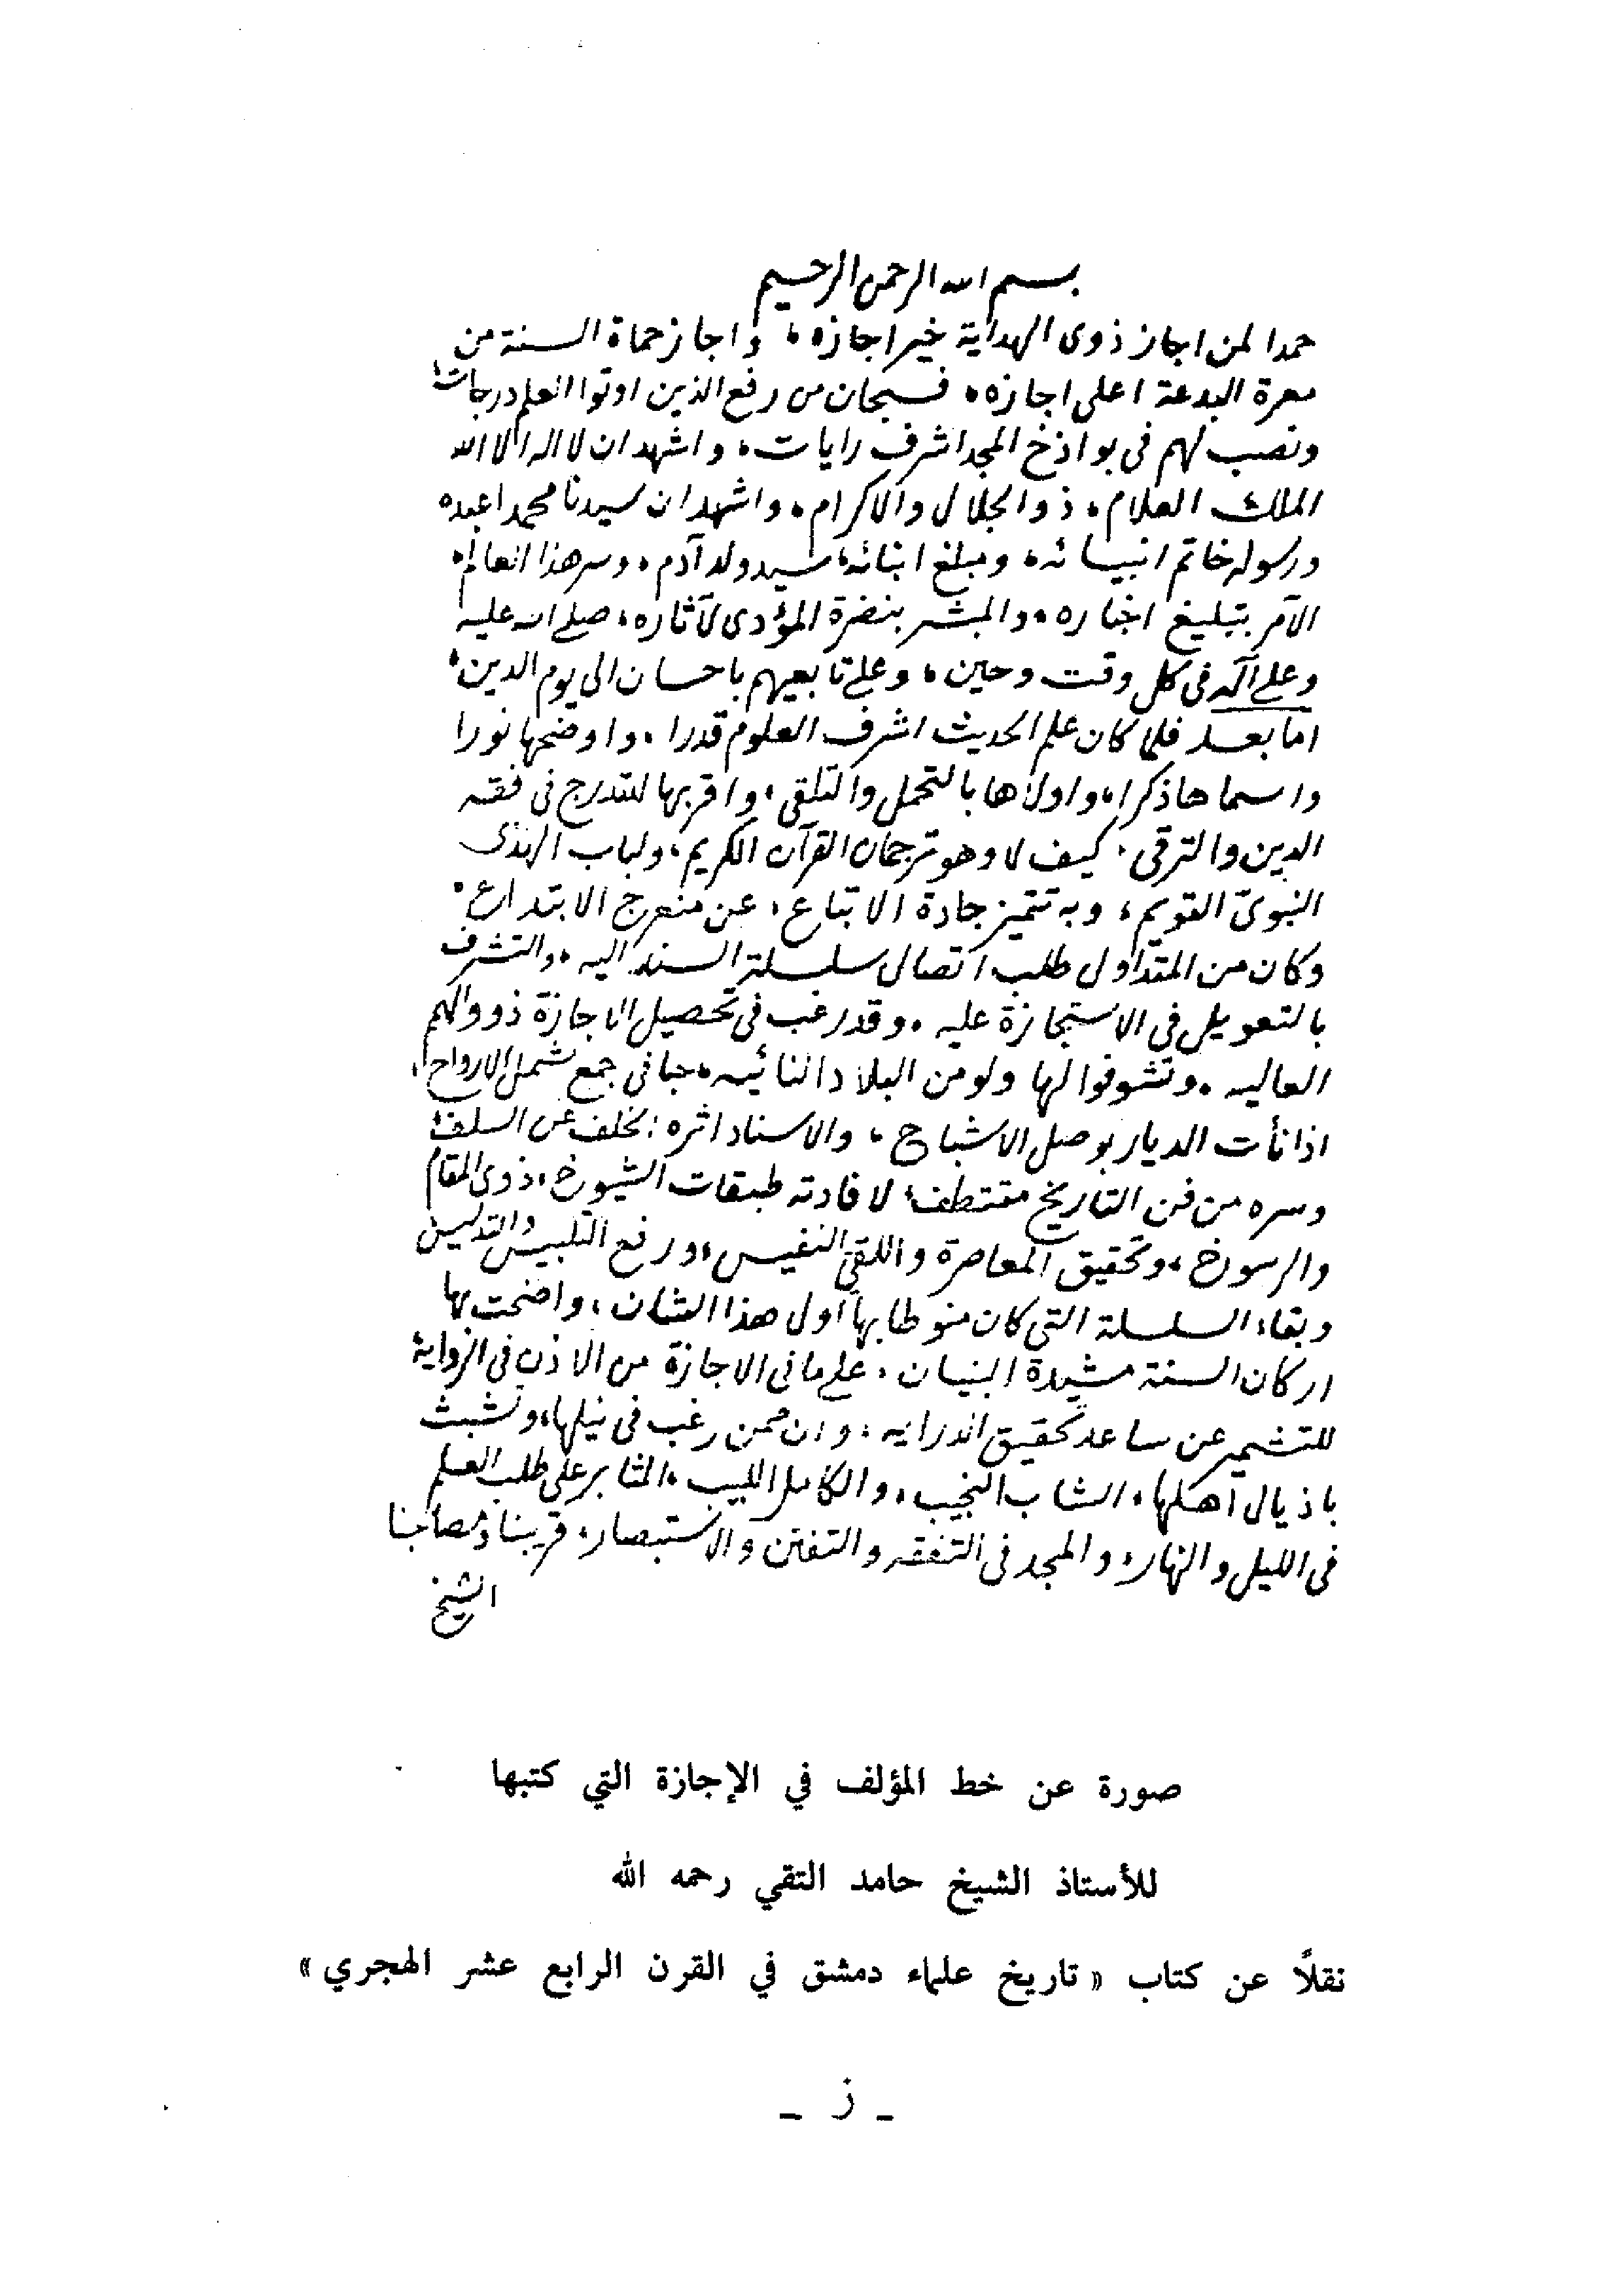 بسم الله الرحمن الرحيم
حمدا لمن اجاز ذوى الهداية خير اجازه، واجاز حماة السنة من
معرة البدعة اعلى اجازه، فسبحان من رفع الذين اوتوا العلم درجات،
ونصب لهم فى بواذخ المجد اشرف رايات، واشهد ان لا اله الا الله
الملك العلام، ذو الجلال والاكرام، واشهد ان سيدنا محمدا عبده
ورسوله خاتم انبيائه، ومبلغ انبائه، سيد ولد آدم، وسر هذا العالم،
الآمر بتبليغ اخباره، والمبشر بنضرة المؤدى لآثاره، صلى الله عليه
وعلى آله فى كل وقت وحين، وعلى تابعيهم باحسان الى يوم الدين،
اما بعد فلما كان علم الحديث اشرف العلوم قدرا، واوضحها نورا
واسماها ذكرا، واولاها بالتحمل والتلقى، واقربها للتدرج فى فقه
الدين والترقى، كيف لا وهو ترجمان القرآن الكريم، ولباب الهدى
النبوىّ القويم، وبه تتميز جادة الاتباع، عن منعرج الابتداع،
وكان من المتداول طلب اتصال سلسلة السند اليه، والتشرف
بالتعويل فى الاستجازة عليه، وقد رغب فى تحصيل الاجازة ذوو الهمم
العاليه، وتشوفوا لها ولو من البلاد النائيه، حبا فى جمع شمل الارواح،
اذا نأت الديار بوصل الاشباح، والاسناد اثره: لخلف عن السلف،
وسره من فن التاريخ مقتطف، لافادته طبقات الشيوخ، ذوى المقام
والرسوخ، وتحقيق المعاصرة واللقى النفيس، ورفع التلبيس والتدليس
وبقاء السلسلة التى كان منوطا بها اول هذا الشان، واضحت بها
اركان السنة مشيدة البنيان، على ما فى الاجازة من الاذن فى الرواية
للتشمير عن ساعد تحقيق الدرايه، وان ممن رغب فى نيلها، وتشبث
باذيال اهلها، الشاب النجيب، والكامل اللبيب، المثابر على طلب العلم
فى الليل والنهار، والمجد فى التفقه والتفنن والاستبصار، قريبنا ومصاحبنا
الشيخ
صورة عن خط المؤلف في الإجازة التي كتبها
للأستاذ الشيخ حامد التقي رحمه الله
نقلًا عن كتاب « تاريخ علماء دمشق في القرن الرابع عشر الهجري »
ـ ز ـ